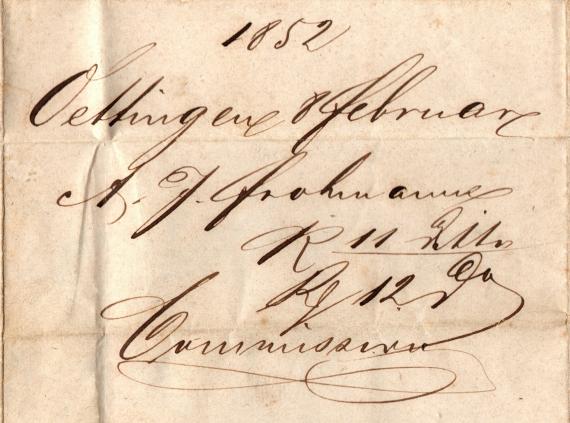 1852
Oettingen 8 februar
A. J. frohmann
R 11 ditto
Rg 12 do
Commission